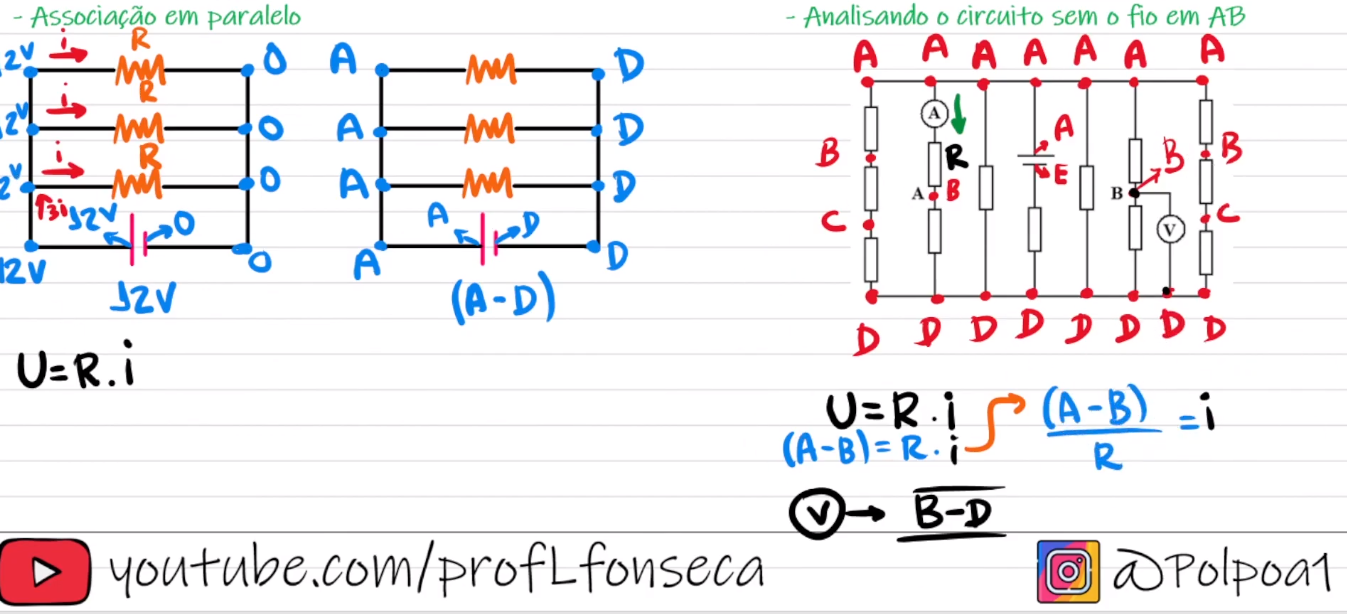 - Associação em paralelo
i R
2V 0
i R
2V 0
i R
2V 0
3i 12V 0
12V 0
12V
U=R.i
A D
A D
A D
A D
A D
(A-D)
- Analisando o circuito sem o fio em AB
A A A A A A A
A
A
R
B B B
E
A B B
C V C
D D D D D D D D
U=R.i (A-B) = i
(A-B)=R.i R
V → B-D
youtube.com/profLfonseca
@Polpoa1